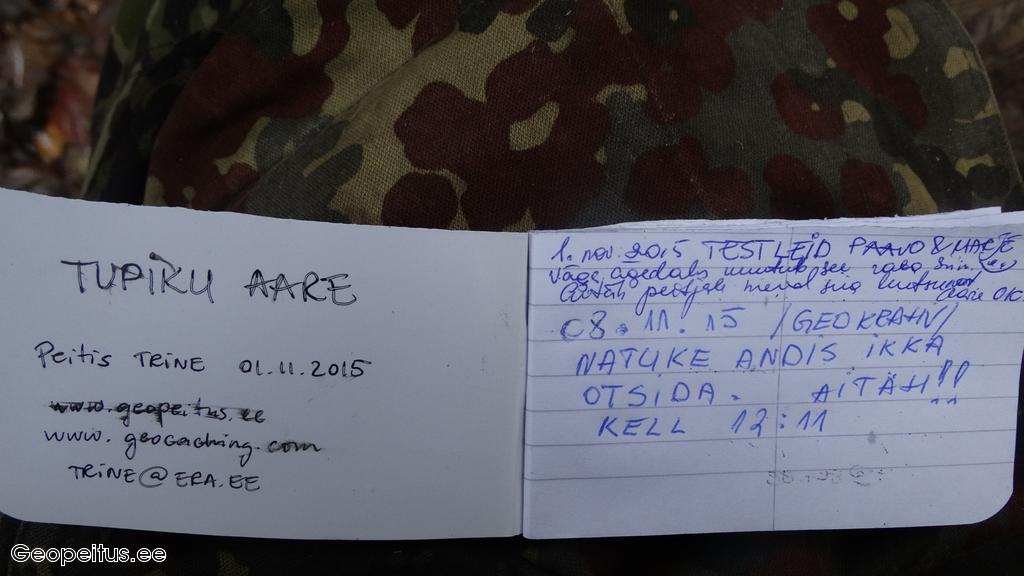 TUPIKU AARE
Peitis TRINE 01.11.2015
www.geopeitus.ee
www.geocaching.com
TRINE@ERA.EE
1. nov. 2015 TESTLEID PAAVO & MARJE
Väga ägedaks muutub see raba siin
Aitäh peitjale meid siia kutsumast
Aare OK.
08.11.15 /GEOKRAHV/
NATUKE ANDIS IKKA
OTSIDA. AITÄH!!
KELL 12:11
Geopeitus.ee